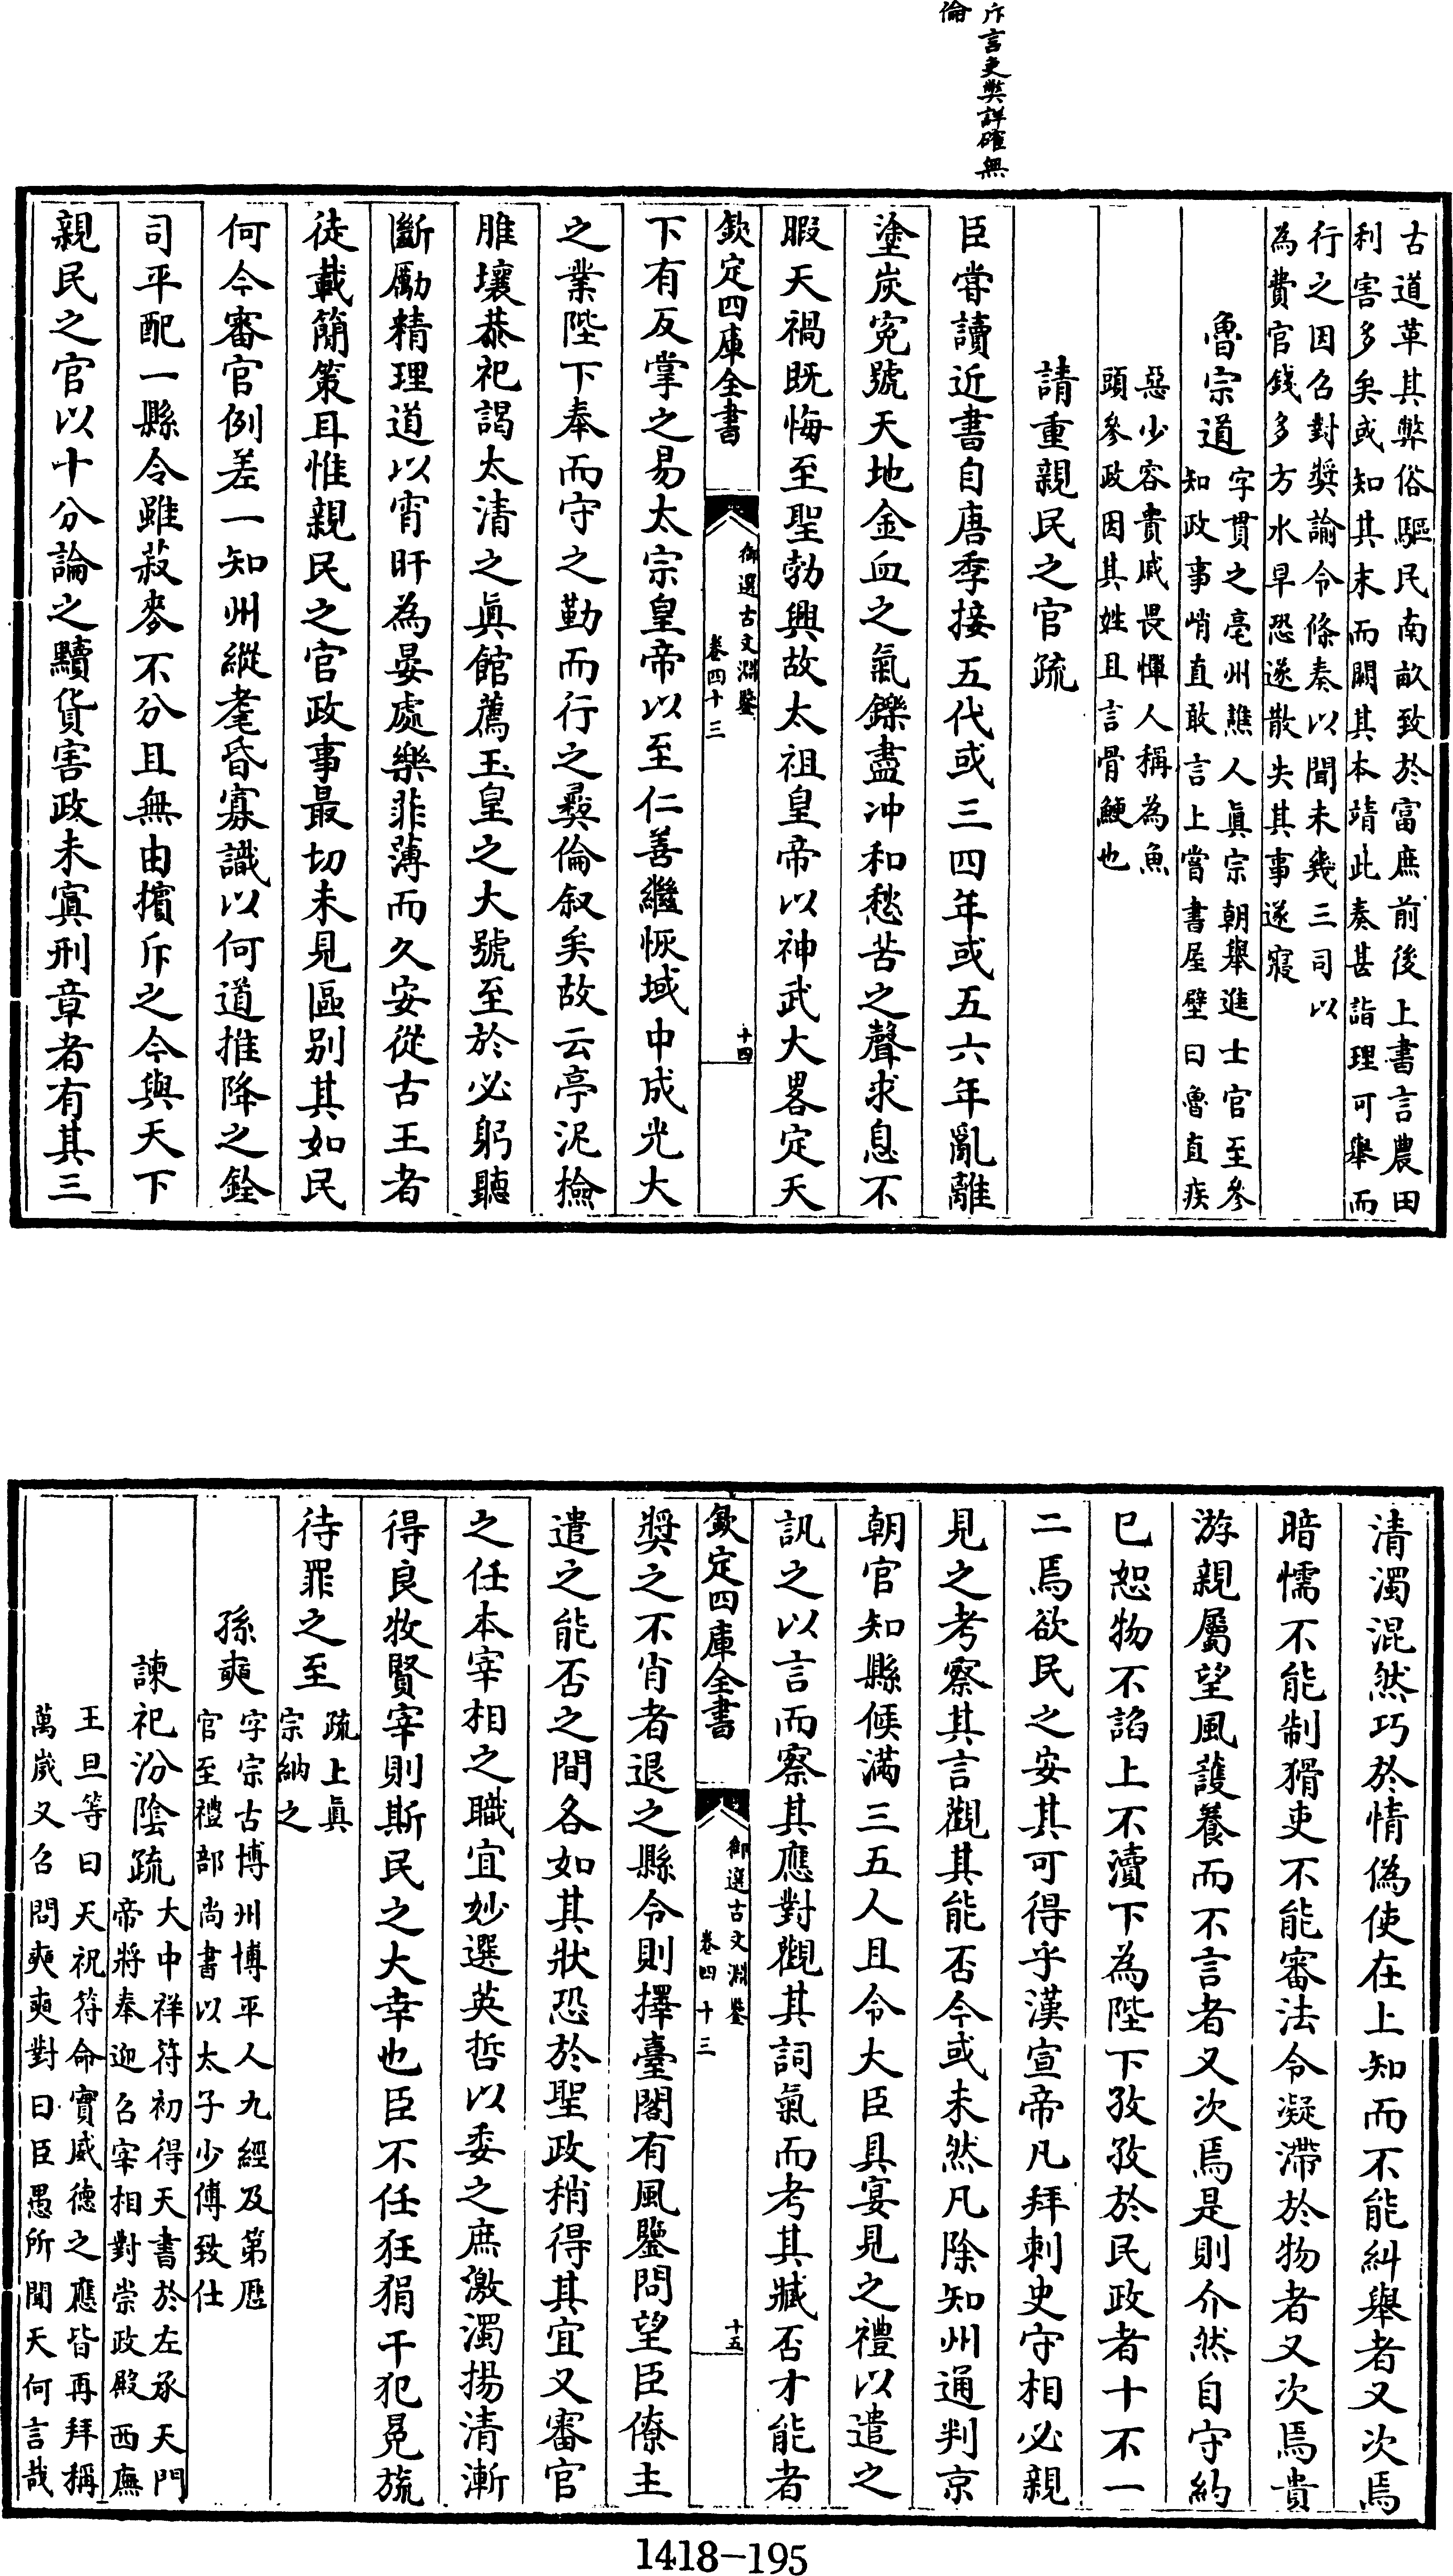 斥言吏弊詳確無
倫
古道革其弊俗驅民南畝致於富庶前後上書言農田
利害多矣或知其末而闕其本靖此奏甚詣理可舉而
行之因召對奬諭令條奏以聞未幾三司以
為費官錢多方水旱恐遂散失其事遂寢
魯宗道
字貫之亳州譙人眞宗朝舉進士官至參
知政事峭直敢言上嘗書屋壁曰魯直疾
惡少容貴戚畏憚人稱為魚
頭參政因其姓且言骨鯁也
請重親民之官疏
臣嘗讀近書自唐季接五代或三四年或五六年亂離
塗炭寃號天地金血之氣鑠盡沖和愁苦之聲求息不
暇天禍既悔至聖勃興故太祖皇帝以神武大畧定天
欽定四庫全書
御選古文淵鑒
卷四十三
十四
下有反掌之易太宗皇帝以至仁善繼恢域中成光大
之業陛下奉而守之勤而行之彜倫叙矣故云亭泥檢
脽壤恭祀謁太清之眞館薦玉皇之大號至於必躬聽
斷勵精理道以宵旰為晏處樂菲薄而久安從古王者
徒載簡策耳惟親民之官政事最切未見區别其如民
何今審官例差一知州縱耄昏寡識以何道推降之銓
司平配一縣令雖菽麥不分且無由擯斥之今與天下
親民之官以十分論之黷貨害政未寘刑章者有其三
清濁混然巧於情偽使在上知而不能糾舉者又次焉
暗懦不能制猾吏不能審法令凝滯於物者又次焉貴
游親屬望風護養而不言者又次焉是則介然自守約
已恕物不諂上不瀆下為陛下孜孜於民政者十不一
二焉欲民之安其可得乎漢宣帝凡拜刺史守相必親
見之考察其言觀其能否今或未然凡除知州通判京
朝官知縣候滿三五人且令大臣具宴見之禮以遣之
訊之以言而察其應對觀其詞氣而考其臧否才能者
欽定四庫全書
御選古文淵鑒
卷四十三
十五
奬之不肖者退之縣令則擇臺閣有風鑒問望臣僚主
遣之能否之間各如其狀恐於聖政稍得其宜又審官
之任本宰相之職宜妙選英哲以委之庶激濁揚清漸
得良牧賢宰則斯民之大幸也臣不任狂狷干犯冕旒
待罪之至
疏上眞
宗納之
孫奭
字宗古博州博平人九經及第歷
官至禮部尚書以太子少傅致仕
諫祀汾陰疏
大中祥符初得天書於左承天門
帝將奉迎召宰相對崇政殿西廡
王旦等曰天祝符命實威德之應皆再拜稱
萬歲又召問奭奭對曰臣愚所聞天何言哉
1418-195